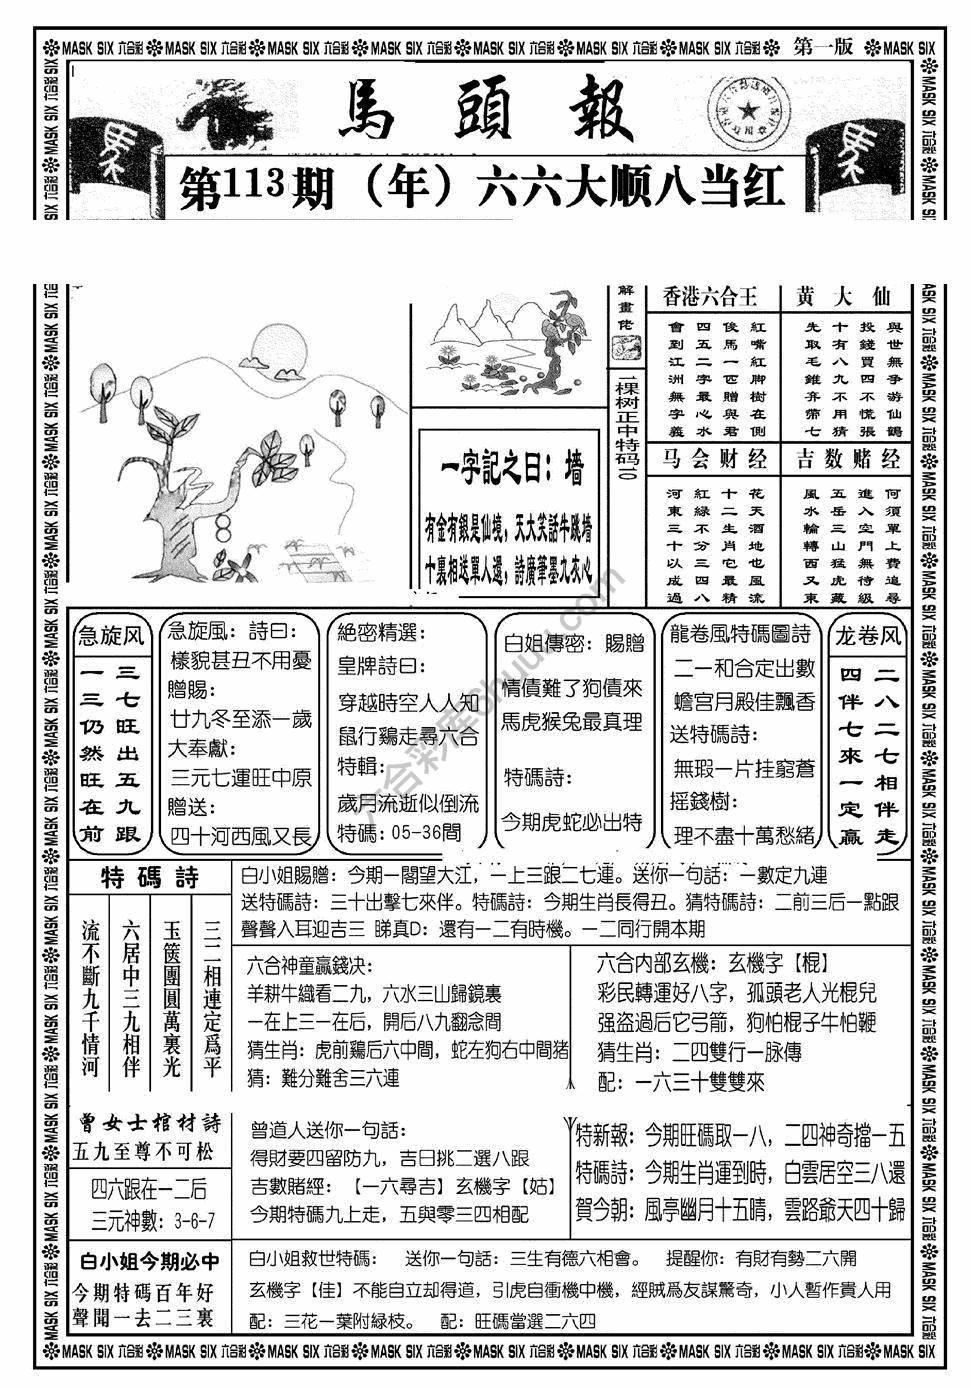 MASK SIX 六合彩 MASK SIX 六合彩 MASK SIX 六合彩 MASK SIX 六合彩 MASK SIX 六合彩 MASK SIX 六合彩 MASK SIX 六合彩 第一版 MASK SIX
馬頭報
第113期（年）六六大顺八当红
解畫佬
一棵树正中特码10
一字記之曰：墙
有金有銀是仙境，天大笑話牛跳墙
十裏相送單人還，詩廣筆墨九來心
香港六合王
紅嘴紅脚樹在側
俊馬一匹贈與君
四五二字最心水
會到江洲無字義
黄大仙
與世無爭游仙鶴
投錢買四不慌張
十有八九不用猜
先取毛錐弃帶七
马会财经
花天酒地也風流
十二生肖它最精
紅緑不分三四八
河東三十以成過
吉数赌经
何須單上費追尋
進入空門無待級
五岳三山猛虎藏
風水輪轉西又東
急旋风
三七旺出五九跟
一三仍然旺在前
急旋風：詩曰：
樣貌甚丑不用憂
贈賜：
廿九冬至添一歲
大奉獻：
三元七運旺中原
贈送：
四十河西風又長
絶密精選：
皇牌詩曰：
穿越時空人人知
鼠行鷄走尋六合
特輯：
歲月流逝似倒流
特碼：05-36間
白姐傳密：賜贈
情債難了狗債來
馬虎猴兔最真理
特碼詩：
今期虎蛇必出特
龍卷風特碼圖詩
二一和合定出數
蟾宫月殿佳飄香
送特碼詩：
無瑕一片挂窮蒼
摇錢樹：
理不盡十萬愁緒
龙卷风
二八二七相伴走
四伴七來一定赢
特碼詩
三二相連定爲平
玉篋團圓萬裏光
六居中三九相伴
流不斷九千情河
白小姐賜贈：今期一閣望大江，一上三跟二七連。送你一句話：一數定九連
送特碼詩：三十出擊七來伴。特碼詩：今期生肖長得丑。猜特碼詩：二前三后一點跟
聲聲入耳迎吉三 睇真D：還有一二有時機。一二同行開本期
六合神童贏錢决：
羊耕牛織看二九，六水三山歸鏡裏
一在上三一在后，開后八九翻念間
猜生肖：虎前鷄后六中間，蛇左狗右中間猪
猜：難分難舍三六連
六合内部玄機：玄機字【棍】
彩民轉運好八字，孤頭老人光棍兒
强盗過后它弓箭，狗怕棍子牛怕鞭
猜生肖：二四雙行一脉傳
配：一六三十雙雙來
曾女士棺材詩
五九至尊不可松
四六跟在一二后
三元神數：3-6-7
曾道人送你一句話：
得財要四留防九，吉日挑二選八跟
吉數賭經：【一六尋吉】玄機字【姑】
今期特碼九上走，五與零三四相配
特新報：今期旺碼取一八，二四神奇擋一五
特碼詩：今期生肖運到時，白雲居空三八還
賀今朝：風亭幽月十五晴，雲路爺天四十歸
白小姐今期必中
今期特碼百年好
聲聞一去二三裏
白小姐救世特碼：　送你一句話：三生有德六相會。　提醒你：有財有勢二六開
玄機字【佳】不能自立却得道，引虎自衝機中機，經賊爲友謀驚奇，小人暫作貴人用
配：三花一葉附緑枝。　配：旺碼當選二六四
MASK SIX 六合彩 MASK SIX 六合彩 MASK SIX 六合彩 MASK SIX 六合彩 MASK SIX 六合彩 MASK SIX 六合彩 MASK SIX 六合彩 MASK SIX 六合彩 MASK SIX